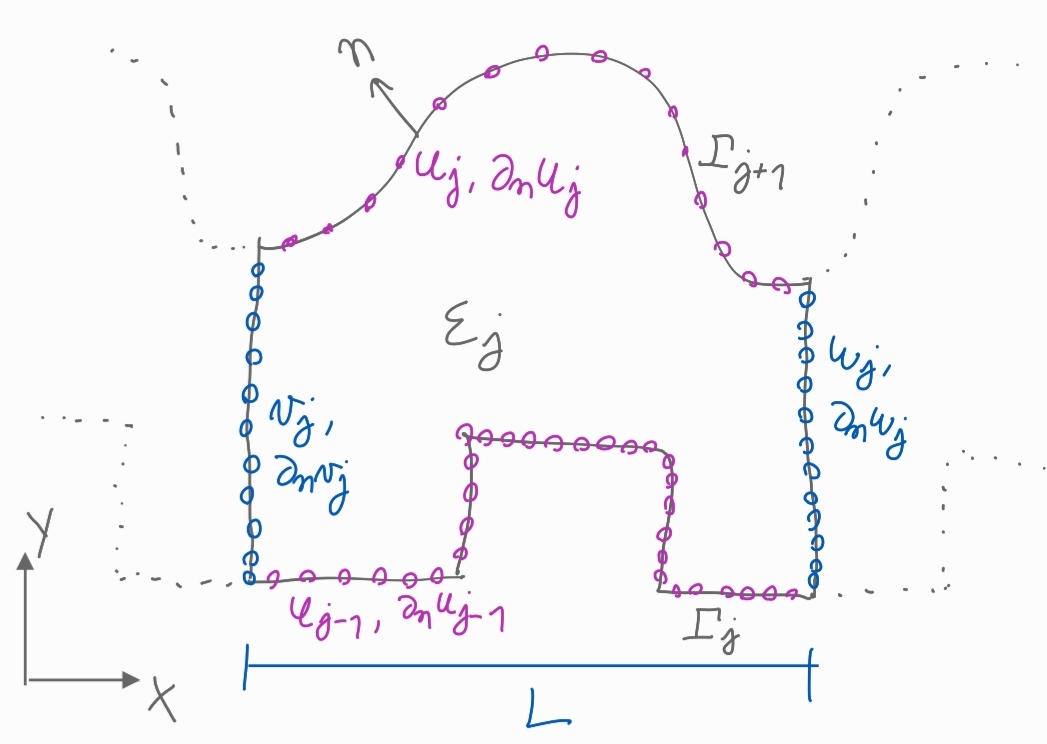 n
u_j, ∂_n u_j
Γ_{j+1}
ℰ_j
v_j,
∂_n v_j
w_j,
∂_n w_j
u_{j-1}, ∂_n u_{j-1}
Γ_j
Y
X
L